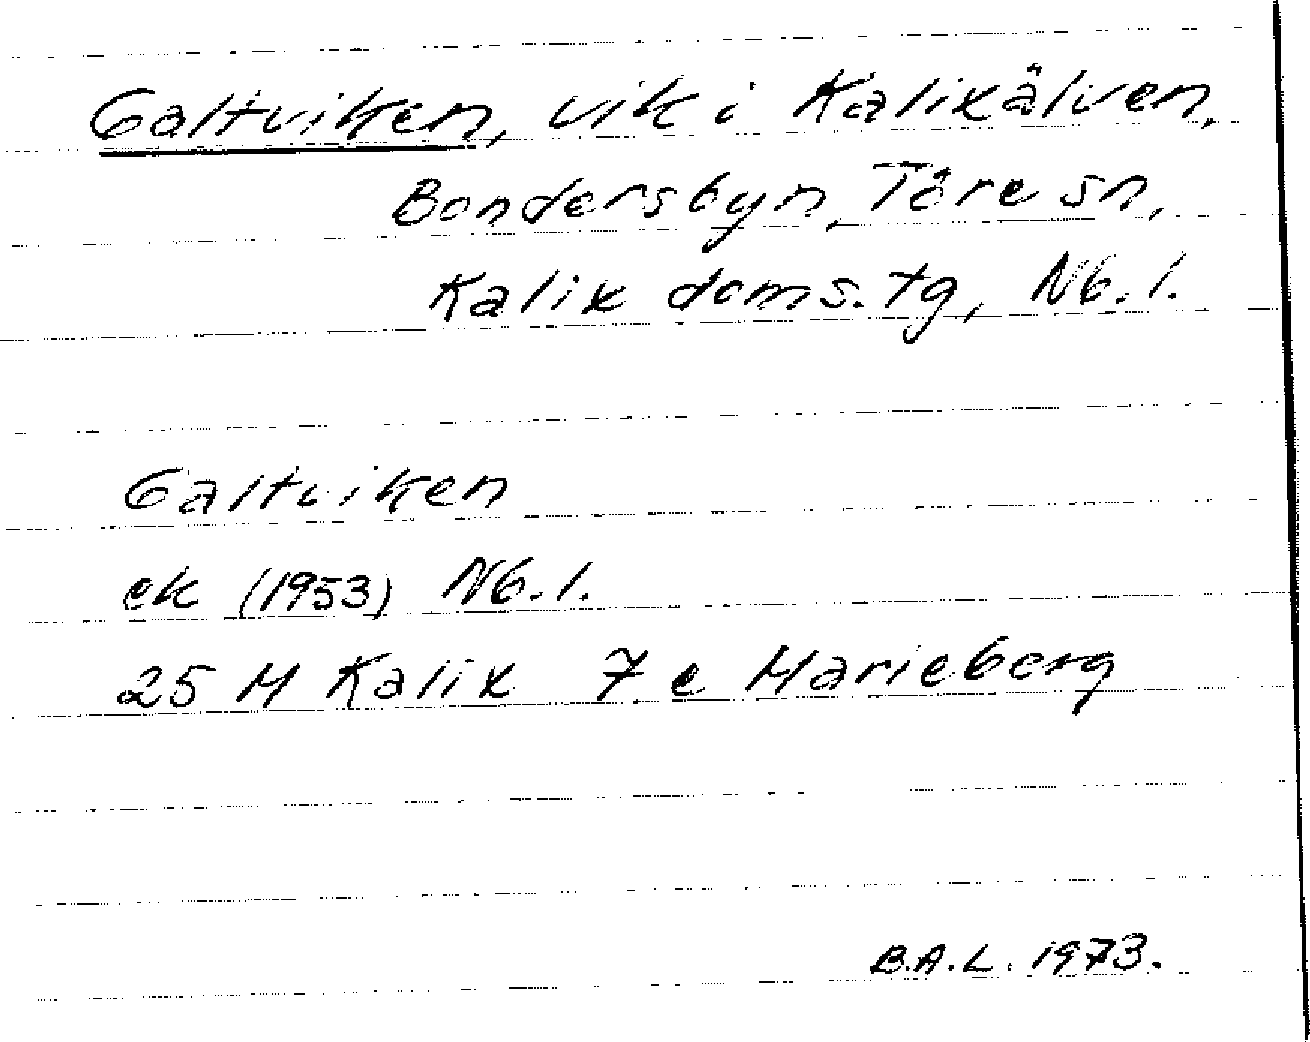 Galtviken, vik i Kalixälven,
Bondersbyn, Töre sn,
Kalix doms. tg, Nb. l.
Galtviken
ek (1953) Nb. l.
25 M Kalix 7 e Marieberg
B.A.L. 1973.